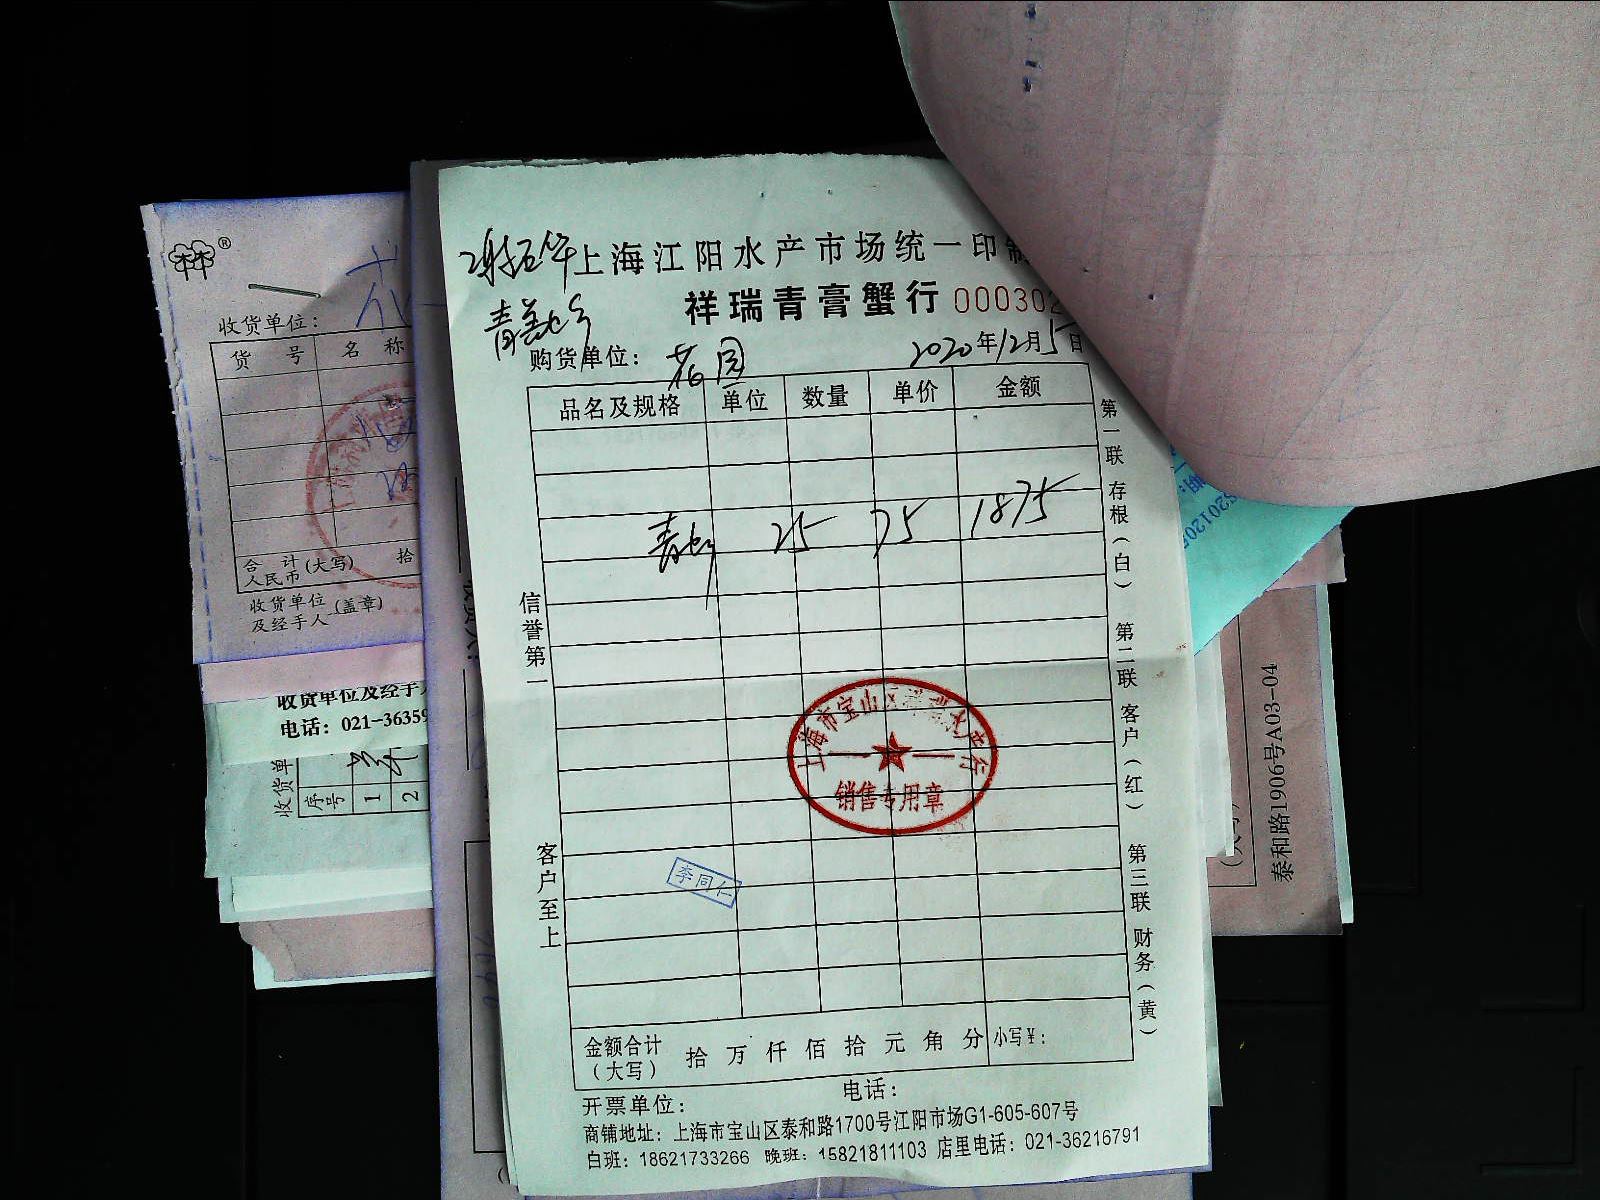 上海江阳水产市场统一印制
祥瑞青膏蟹行 000302
购货单位： 花园 2020年12月15日
品名及规格 单位 数量 单价 金额
25 75 1875
信誉第一
客户至上
第一联 存根（白） 第二联 客户（红） 第三联 财务（黄）
上海市宝山区祥瑞水产行
销售专用章
李同仁
金额合计（大写） 拾 万 仟 佰 拾 元 角 分 小写¥：
开票单位： 电话：
商铺地址：上海市宝山区泰和路1700号江阳市场G1-605-607号
白班：18621733266 晚班：15821811103 店里电话：021-36216791
®
收货单位：
货号 名称
合计
人民币(大写) 拾
收货单位
及经手人(盖章)
收货单位及经手人
电话：021-36359
收货单
序号
1
2
泰和路1906号A03-04